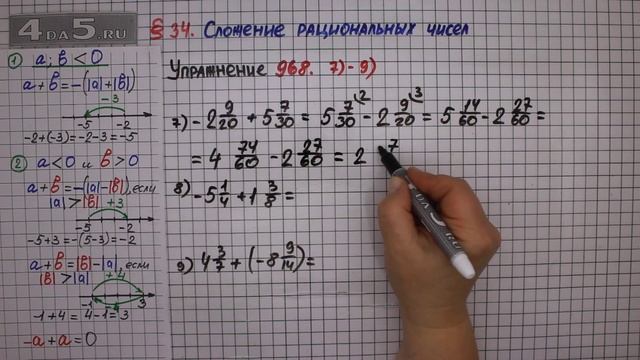 4DA5.RU
§ 34. Сложение рациональных чисел
1) a; b < 0
a + b = -(|a| + |b|)
-3
-5 -2
-2+(-3) = -2-3 = -5
2) a < 0 и b > 0
a + b = -(|a| - |b|), если
|a| > |b| +3
-5 -2
-5+3 = -(5-3) = -2
a + b = |b| - |a|, если
|b| > |a| +4
-1 3
-1+4 = 4-1 = 3
-a + a = 0
Упражнение 968. 7)-9)
7) -2 9/20 + 5 7/30 = 5 7/30 \2 - 2 9/20 \3 = 5 14/60 - 2 27/60 =
= 4 74/60 - 2 27/60 = 2 7
8) -5 1/4 + 1 3/8 =
9) 4 3/7 + (-8 9/14) =
4DA5.RU